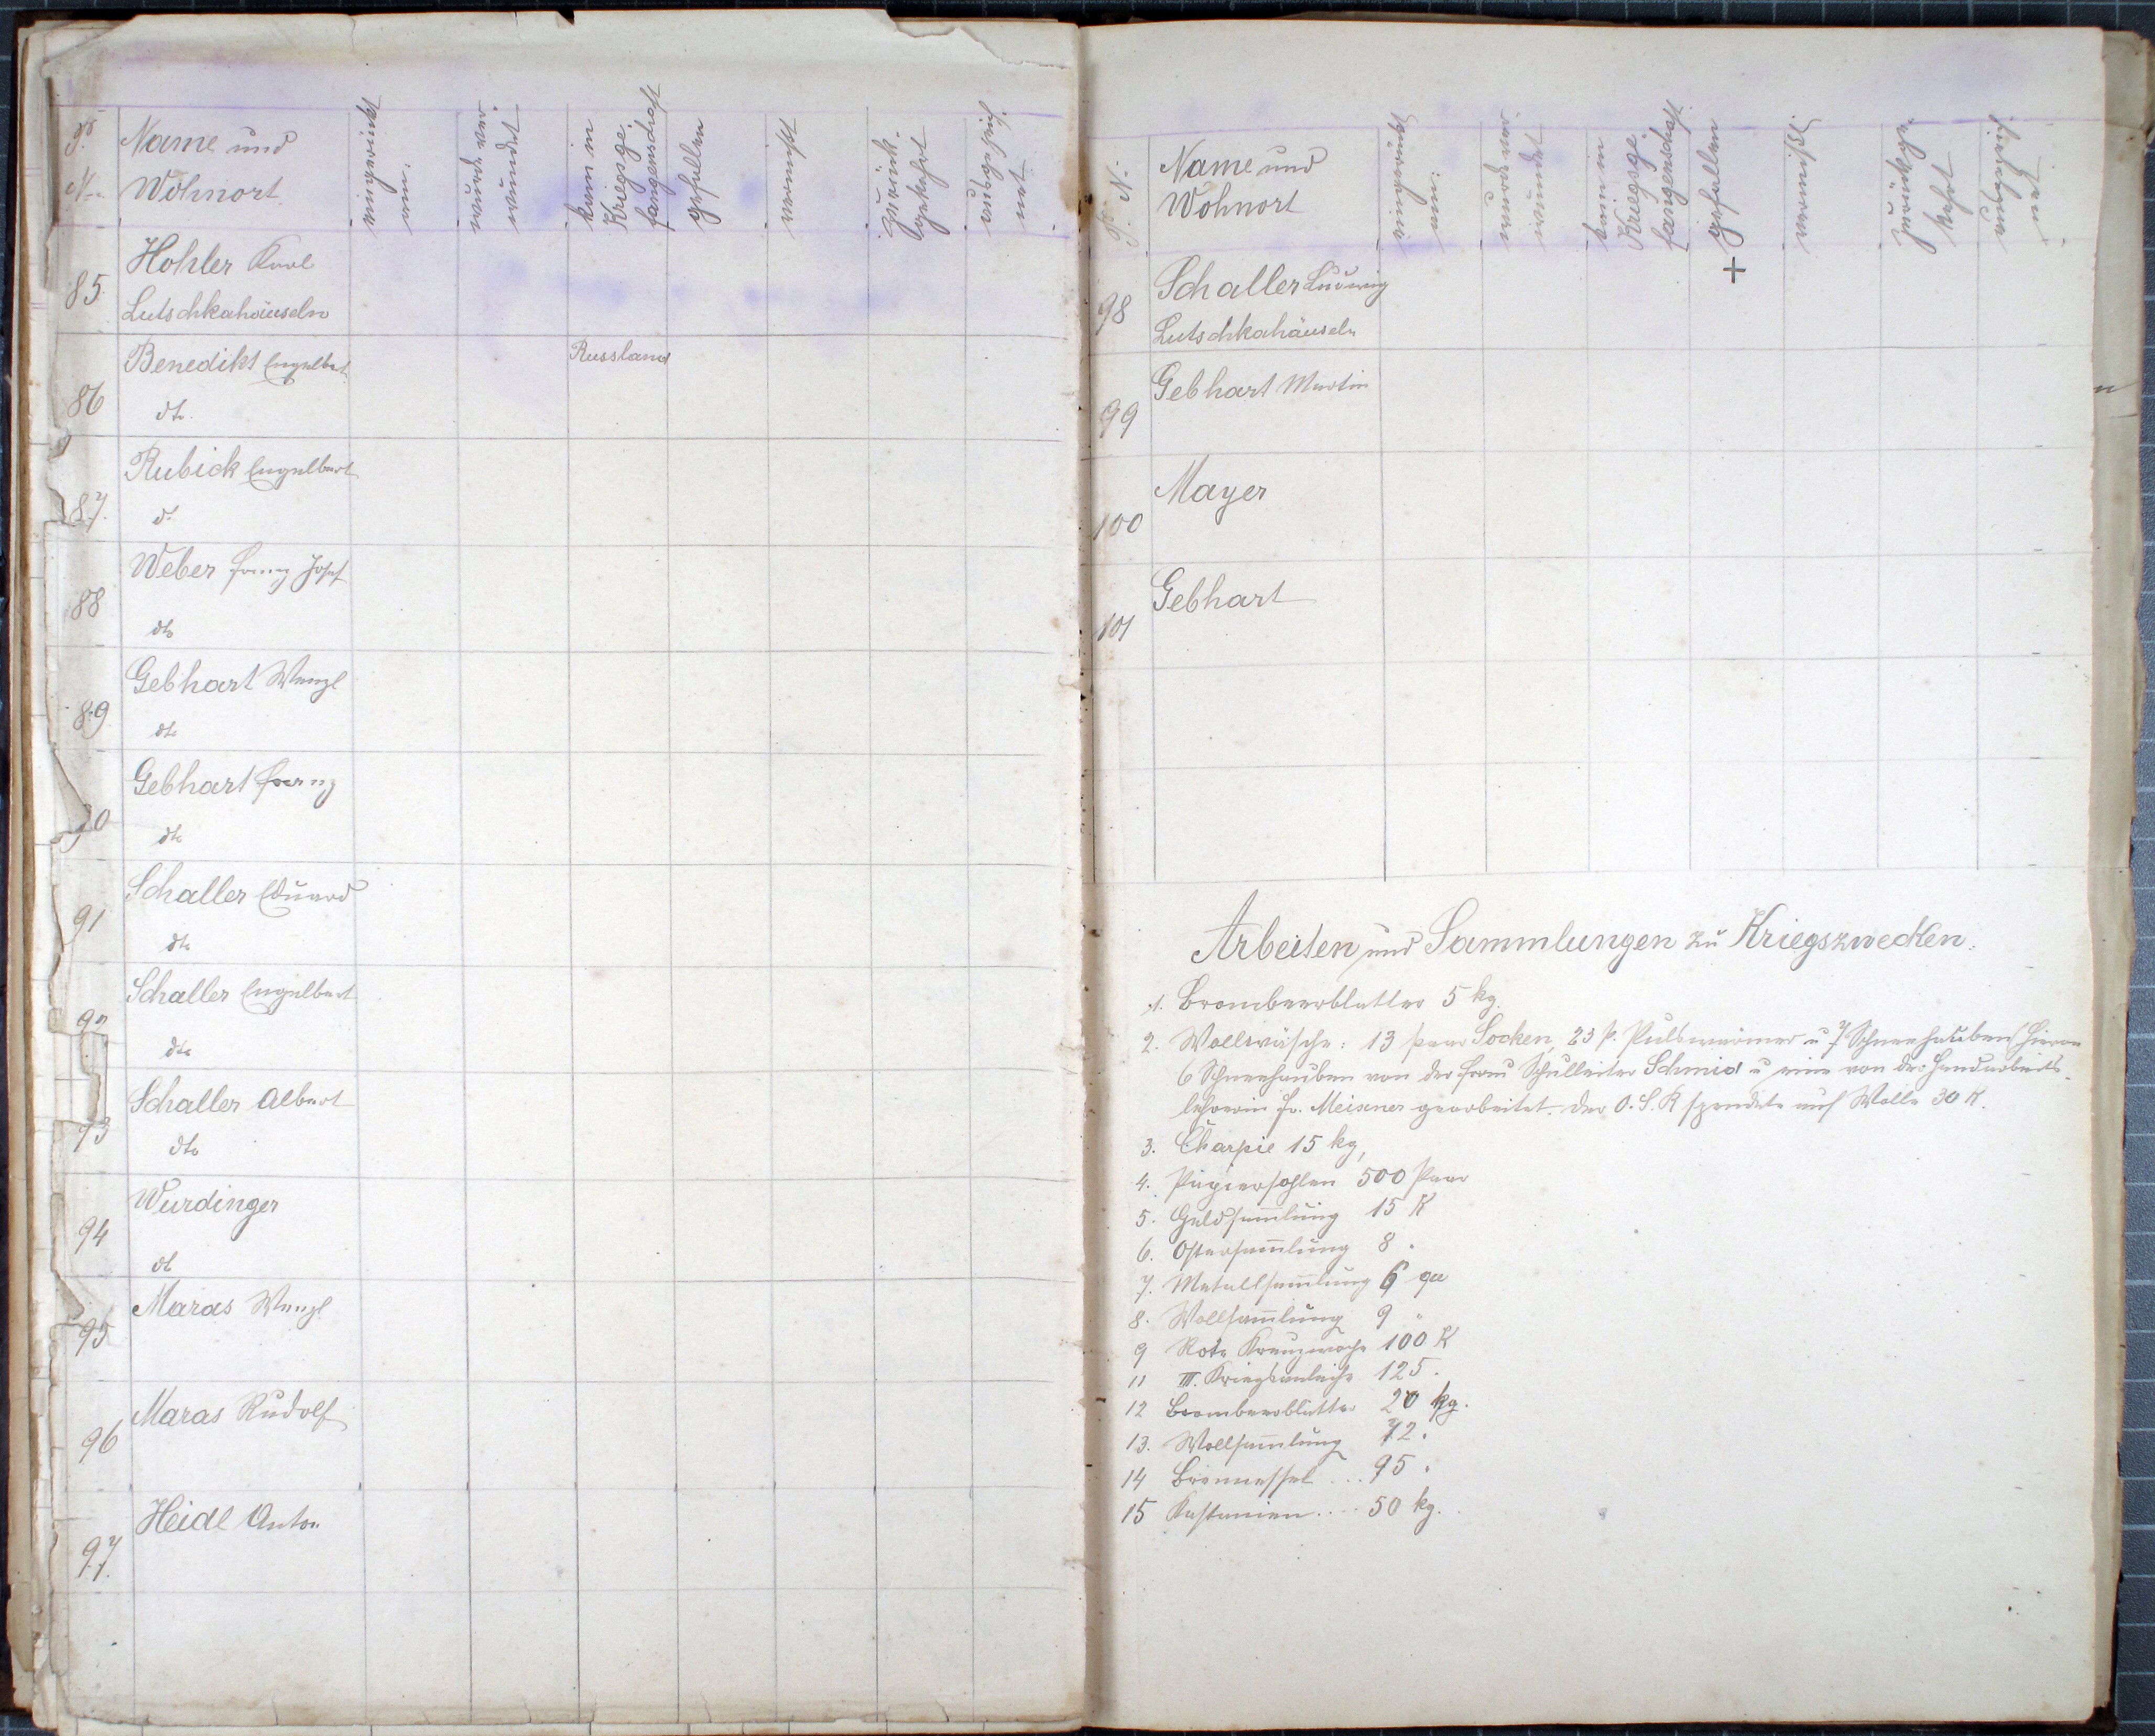 P.
No
Name und
Wohnort
eingerückt
am:
wurde ver-
wundet
kam in
Kriegsge-
fangenschaft
gefallen
vermisst
zurück-
gekehrt
ausgezeich-
net
85
Hohler Karl
Lutschkahäuseln
86
Benedikt Engelbert
Russland
dto.
87.
Rubick Engelbert
d.
88
Weber Franz Josef
dto
89
Gebhart Wenzl
dto
90
Gebhart Franz
dto
91
Schaller Eduard
dto
92
Schaller Engelbert
dto
93
Schaller Albert
dto
94
Wurdinger
dt
95
Maras Wenzl
96
Maras Rudolf
97.
Heidl Anton
P. N.
Name und
Wohnort
eingerückt
am:
wurde ver-
wundet
kam in
Kriegsge-
fangenschaft
gefallen
vermißt
zurückge-
kehrt
98
Schaller Ludwig
+
Lutschkahäuseln
99
Gebhart Martin
100
Mayer
101
Gebhart
Arbeiten und Sammlungen zu Kriegszwecken.
1. Brombeerblätter 5 kg.
2. Wollwäsche: 13 paar Socken, 23 p. Pulswärmer u. 7 Schneehauben hievon
6 Schneehauben von der Frau Schulleiter Schmid u eine von der Handarbeits-
lehrerin Fr. Meixner gearbeitet. Der O.S.R spendete auf Wolle 30 K.
3. Charpie 15 kg,
4. Papiersohlen 500 Paar
5. Geldsam̅lung 15 K
6. Ostersam̅lung 8 "
7. Metallsam̅lung 6 qu
8. Wollsam̅lung 9 "
9 Rote Kreuzwoche 100 K
11 III. Kriegsanleihe 125.
12 Brombeerblätter 20 kg.
13. Wollsam̅lung 72.
14 Brennessel ... 95 "
15 Kastanien .... 50 kg.